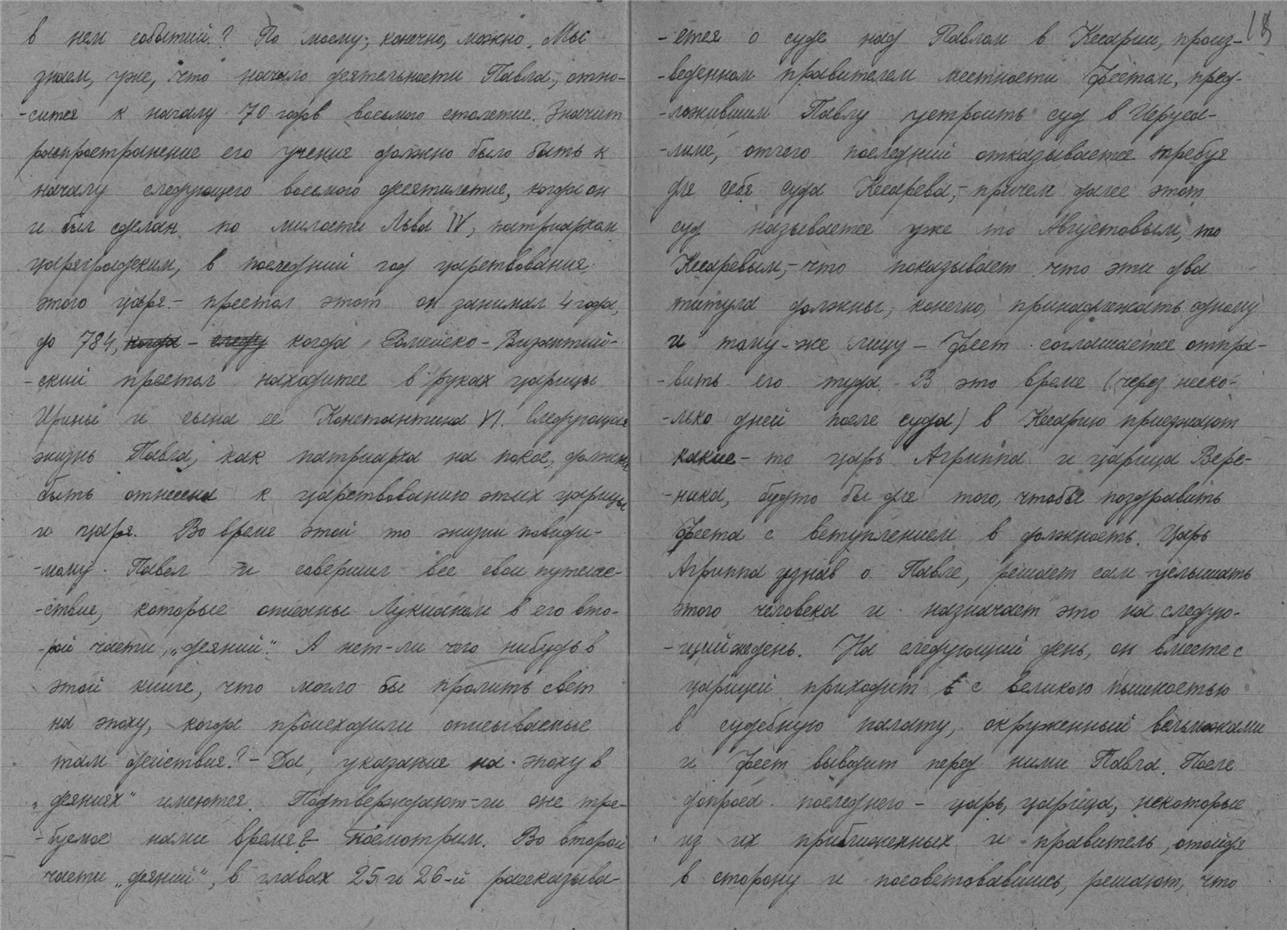 в нем событий? По моему, конечно, можно. Мы
знаем, уже, что начало деятельности Павла, отно-
-сится к началу 70 годов восьмого столетия. Значит
распространение его учения должно было быть к
началу следующего восьмого десятилетия, когда он
и был сделан по милости Льва IV, патриархом
цареградским, в последний год царствования
этого царя - престол этот он занимал 4 года,
до 784, когда - следу когда Ромейско-Византий-
-ский престол находится в руках царицы
Ирины и сына ее Константина VI. Следующая
жизнь Павла, как патриарха на покое, должна
быть отнесена к царствованию этих царицы
и царя. Во время этой то жизни повиди-
-мому Павел и совершил все свои путеше-
-ствия, которые описаны Лукианом в его вто-
-рой части "деяний". А нет-ли чего нибудь в
этой книге, что могло бы пролить свет
на эпоху, когда происходили описываемые
там действия? - Да, указания на эпоху в
"деяниях" имеются. Подтверждают-ли они тре-
-буемое нами время? Посмотрим. Во второй
части "деяний", в главах 25 и 26-й рассказыва-
18
-ется о суде над Павлом в Кесарии, произ-
-веденном правителем местности Фестом, пред-
-ложившим Павлу устроить суд в Иеруса-
-лиме, отчего последний отказывается требуя
для себя суда Кесарева, - причем далее этот
суд называется уже то Августовым, то
Кесаревым, - что показывает что эти два
титула должны, конечно, принадлежать одному
и тому-же лицу - Фест соглашается отпра-
-вить его туда. В это время (через неско-
-лько дней после суда) в Кесарию приезжают
какие-то царь Агриппа и царица Вере-
-ника, будто бы для того, чтобы поздравить
Феста с вступлением в должность. Царь
Агриппа узнав о Павле, решает сам услышать
этого человека и назначает это на следую-
-щий же день. На следующий день, он вместе с
царицей приходит с великою пышностью
в судебную палату, окруженный вельможами
и Фест выводит перед ними Павла. После
допроса последнего - царь, царица, некоторые
из их приближенных и правитель, отойдя
в сторону и посоветовавшись, решают, что